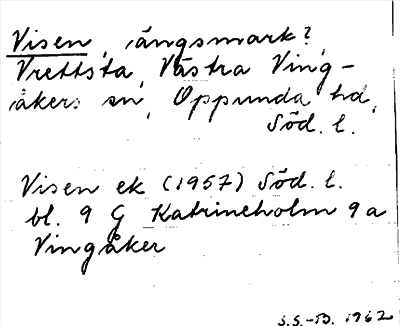 Visen, ängsmark?,
Vrettsta, Västra Ving-
åkers sn, Oppunda hd,
Söd. l.
Visen ek (1957) Söd. l.
bl. 9 G Katrineholm 9a
Vingåker
S.S.-B. 1962